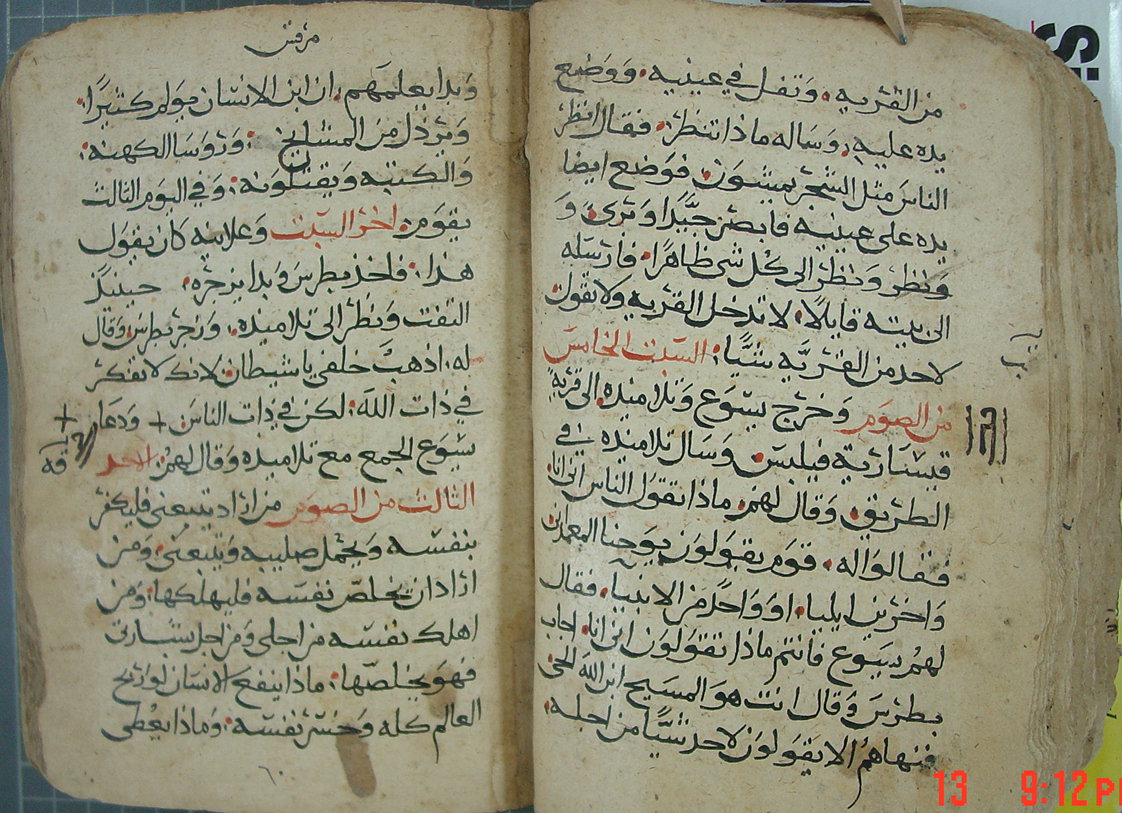 من القريه. وتفل في عينيه. ووضع
يده عليه. وساله ماذا تنظر. فقال انظر
الناس مثل الشجر يمشون. فوضع ايضا
يده على عينيه فابصر جيدا وترى. و
ونظر ونظر الى كل شى ظاهرا. فارسله
الى بيته قايلا. لا تدخل القريه ولا تقول
لاحد من القريه شيا. السبت الخامس
من الصوم وخرج يسوع وتلاميذه الى قرية
قيسارية فيلبس. وسال تلاميذه في
الطريق. وقال لهم. ماذا تقول الناس انى انا.
فقالوا له. قوم يقولون يوحنا المعمدان
واخرين ايليا. او واحد من الانبيا. فقال
لهم يسوع فانتم ماذا تقولون انى انا. اجاب
بطرس وقال انت هو المسيح ابن الله الحى
فنهاهم الا يقولون لاحد شيا من اجله.
مرقس
وبدا يعلمهم. ان ابن الانسان يولم كثيرا.
ويرذل من المشايخ. وروسا الكهنه.
والكتبه ويقتلونه. وفي اليوم الثالث
يقوم. اخر السبت وعلانيه كان يقول
هذا. فاخذ بطرس وبدا يزجره. حينيذ
التفت ونظر الى تلاميذه. وزجر بطرس وقال
له. اذهب خلفي يا شيطان. لانك لا تفكر
في ذات الله. لكن في ذات الناس + ودعا
يسوع الجمع مع تلاميذه وقال لهم. الاحد
الثالث من الصوم من اراد يتبعنى فليكفر
بنفسه ويحمل صليبه ويتبعنى. ومن
اراد ان يخلص نفسه فليهلكها. ومن
اهلك نفسه من اجلى ومن اجل بشارتى
فهو يخلصها. ماذا ينفع الانسان لو ربح
العالم كله وخسر نفسه. وماذا يعطى
٦٠
13 9:12 P